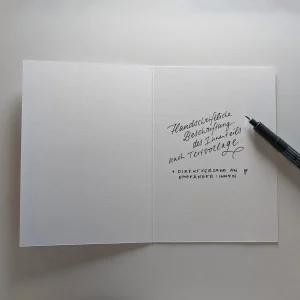 Handschriftliche
Beschriftung
des Innenteils
nach Textvorlage
+ DIREKTVERSAND AN
EMPFÄNGER:INNEN